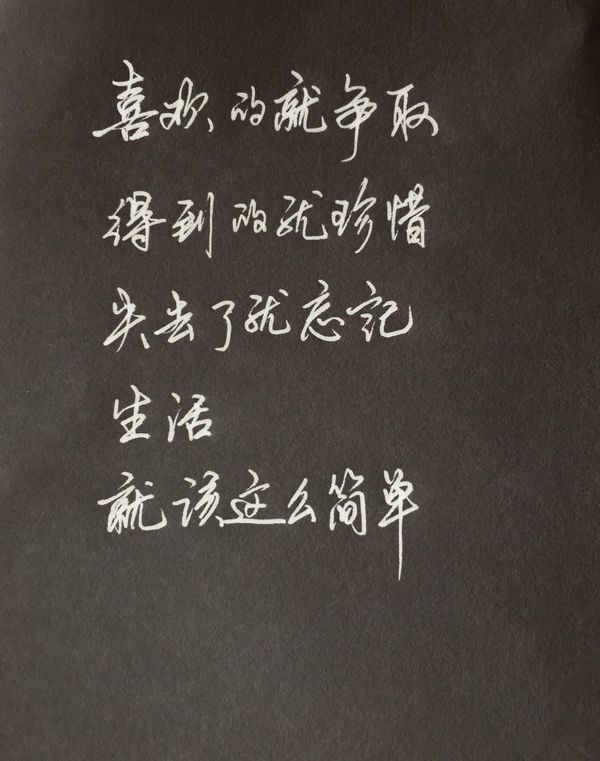 喜欢的就争取
得到的就珍惜
失去了就忘记
生活
就该这么简单